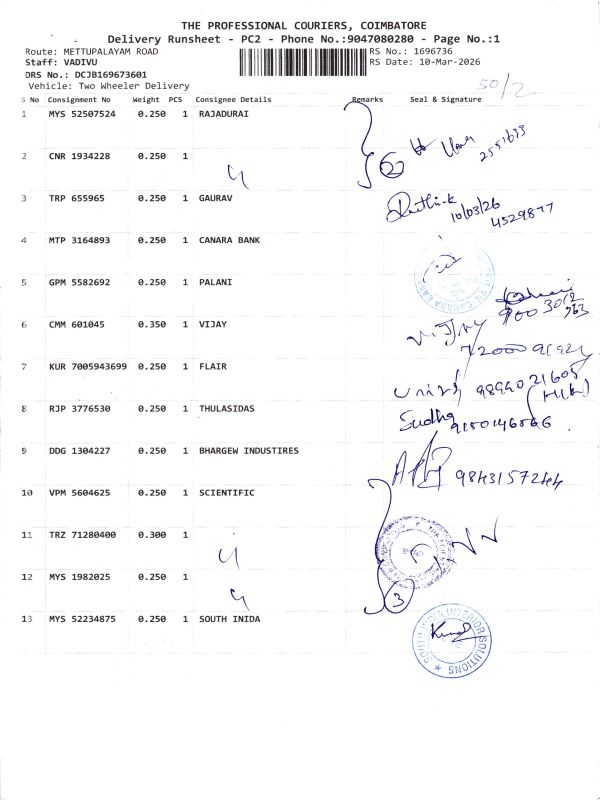 THE PROFESSIONAL COURIERS, COIMBATORE
Delivery Runsheet - PC2 - Phone No.:9047080280 - Page No.:1
Route: METTUPALAYAM ROAD RS No.: 1696736
Staff: VADIVU RS Date: 10-Mar-2026
DRS No.: DCJB169673601
Vehicle: Two Wheeler Delivery 50/2
S No Consignment No Weight PCS Consignee Details Remarks Seal & Signature
1 MYS 52507524 0.250 1 RAJADURAI
2 CNR 1934228 0.250 1 2
3 TRP 655965 0.250 1 GAURAV 10/03/26
4529877
4 MTP 3164893 0.250 1 CANARA BANK
5 GPM 5582692 0.250 1 PALANI
6 CMM 601045 0.350 1 VIJAY
7 KUR 7005943699 0.250 1 FLAIR
8 RJP 3776530 0.250 1 THULASIDAS Sudha
9 DDG 1304227 0.250 1 BHARGEW INDUSTIRES 9843157244
10 VPM 5604625 0.250 1 SCIENTIFIC
11 TRZ 71280400 0.300 1
12 MYS 1982025 0.250 1 3
13 MYS 52234875 0.250 1 SOUTH INIDA
SOUTH INDIA INTERIOR SOLUTIONS